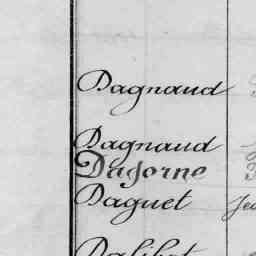 Dagnaud
Dagnaud
Dagorne
Daguet Je
Dalibot